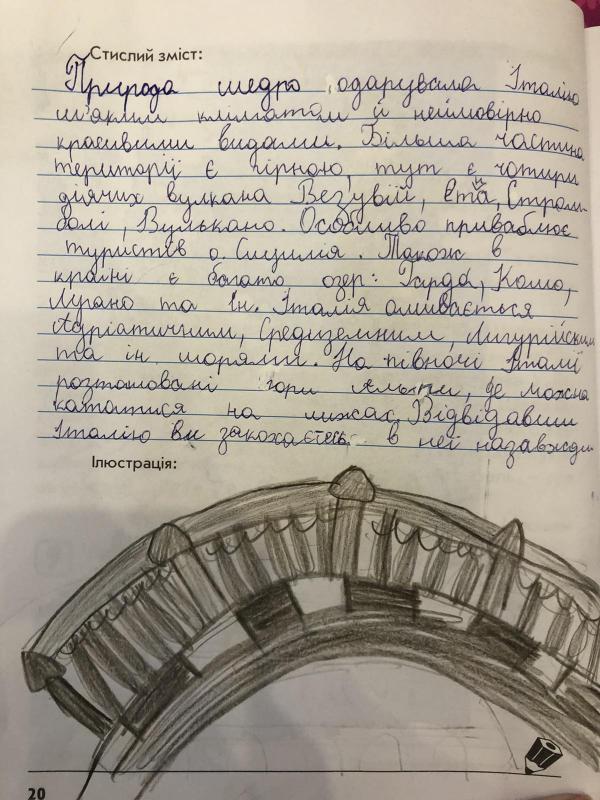 Стислий зміст:
Природа щедро одарувала Італію
м'яким кліматом й неймовірно
красивими видами. Більша частина
території є гірною, тут є чотири
діячих вулкана Везувій, Етна, Стром-
болі, Вулькано. Особливо приваблює
туристів о. Сицилія. Також в
країні є багато озер: Гарда, Комо,
Лугано та ін. Італія омивається
Адріатичним, Средиземним, Лигурійским
та ін. морями. На півночі Італії
розташовані гори Альпи, де можна
кататися на лижах. Відвідавши
Італію ви закохаєтесь в неї назавжди
Ілюстрація:
20